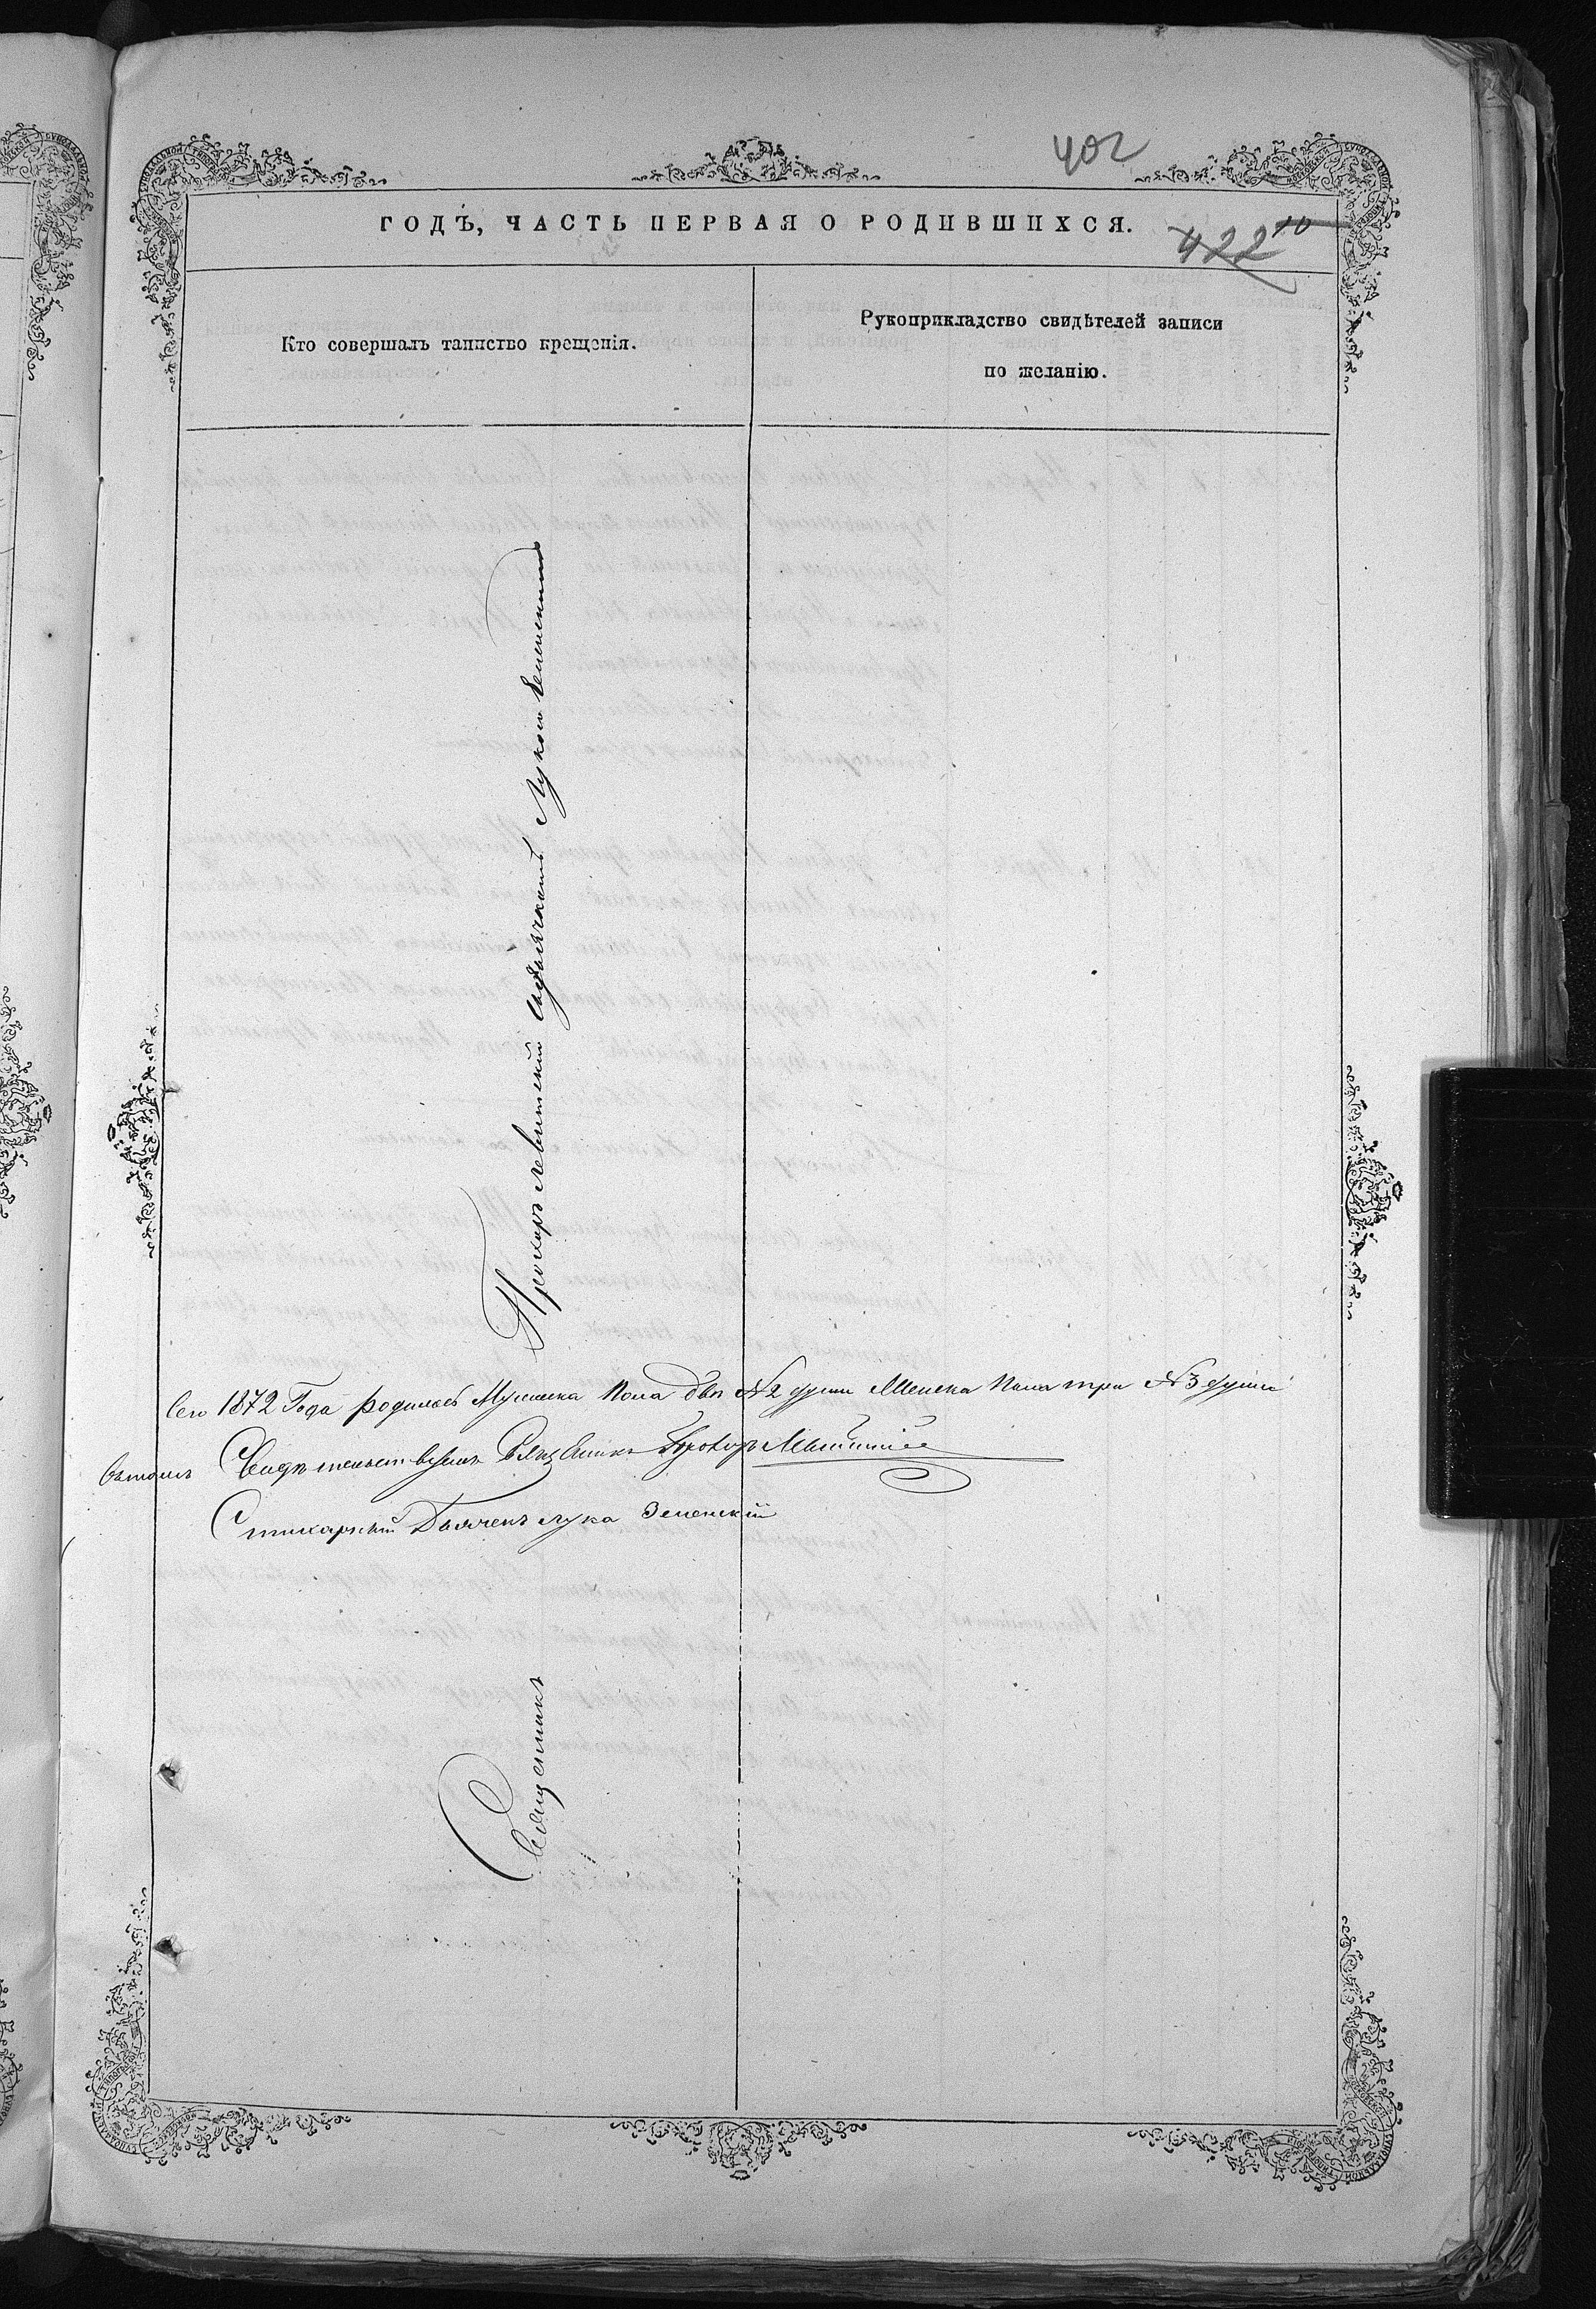 402
ГОДЪ, ЧАСТЬ ПЕРВАЯ О РОДИВШИХСЯ.
422
10
Кто совершалъ таинство крещенія.
Рукоприкладство свидѣтелей записи
по желанію.
Священникъ Прохоръ Левитскій съ дьячкомъ Лукою Зеленскимъ
Сего 1872 Года родилось Мужеска Пола два №2 души Женска Пола три №3 души
Въ томъ Свидѣтельствуемъ Священникъ Прохоръ Левитскій
Стихарный Дьячекъ Лука Зеленскій